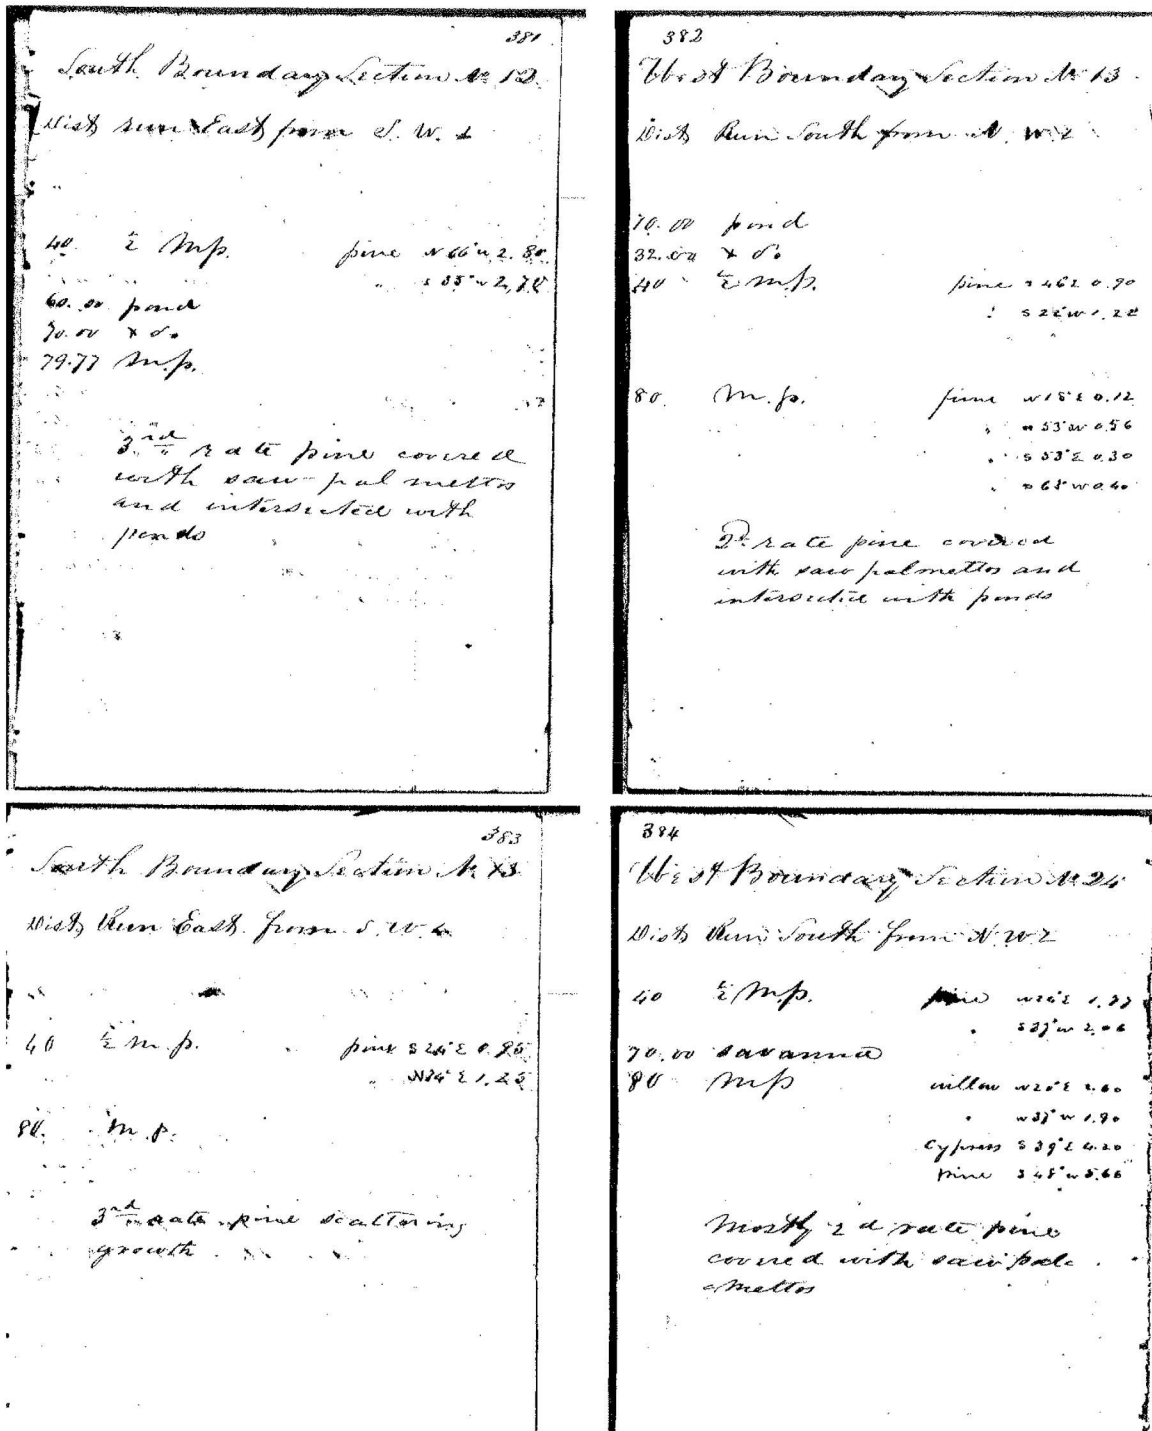 381
South Boundary Section No 12
Dist run East from S. W.
40. ½ M.p. pine N 66 W 2.80
" S 35 W 2,70
60.00 pond
70.00 x do
79.77 M.p.
3rd rate pine covered
with saw palmettos
and intersected with
ponds
382
West Boundary Section No 13
Dist Run South from N W
10.00 pond
32.00 x do
40 ½ M.p. pine S 46 E 0.90
" W 1.22
80. M.p. pine N 15 E 0.12
" N 53 W 0.56
" S 53 E 0.30
" W 0.40
rate pine covered
with saw palmettos and
intersected with ponds
383
South Boundary Section No 13
Dist Run East from S. W.
40 ½ M.p. pine S 24 E
" E 1.25
80. M.p.
3rd rate pine scattering
growth
384
West Boundary Section No 24
Dist Run South from N W
40 ½ M.p. pine E
" S 37 W 2.06
70.00 savanna
80 M.p willow N 20 E
" N 37 W 1.90
Cypress S 39 E 4.20
pine S 45 W 5.66
Mostly 2d rate pine
covered with saw pal
mettos